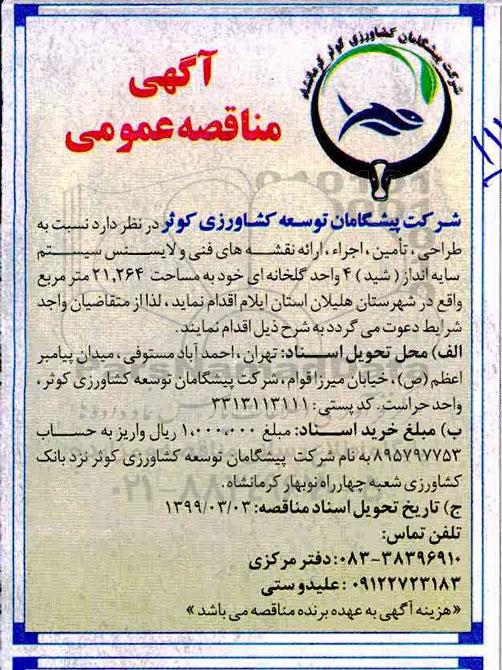 شرکت پیشگامان کشاورزی کوثر کرمانشاه
آگهی
مناقصه عمومی
شرکت پیشگامان توسعه کشاورزی کوثر در نظر دارد نسبت به
طراحی ، تأمین ، اجراء ، ارائه نقشه های فنی و لایسنس سیستم
سایه انداز ( شید ) ۴ واحد گلخانه ای خود به مساحت ۲۱,۲۶۴ متر مربع
واقع در شهرستان هلیلان استان ایلام اقدام نماید ، لذا از متقاضیان واجد
شرایط دعوت می گردد به شرح ذیل اقدام نمایند .
الف) محل تحویل اسناد: تهران ، احمد آباد مستوفی ، میدان پیامبر
اعظم (ص) ، خیابان میرزا قوام ، شرکت پیشگامان توسعه کشاورزی کوثر ،
واحد حراست . کد پستی : ۳۳۱۳۱۱۳۱۱۱
ب) مبلغ خرید اسناد: مبلغ ۱,۰۰۰,۰۰۰ ریال واریز به حساب
۸۹۵۷۹۷۷۵۳ به نام شرکت پیشگامان توسعه کشاورزی کوثر نزد بانک
کشاورزی شعبه چهارراه نوبهار کرمانشاه.
ج) تاریخ تحویل اسناد مناقصه: ۱۳۹۹/۰۳/۰۳
تلفن تماس:
۰۸۳-۳۸۳۹۶۹۱۰: دفتر مرکزی
۰۹۱۲۲۷۲۳۱۸۳ : علیدوستی
«هزینه آگهی به عهده برنده مناقصه می باشد »